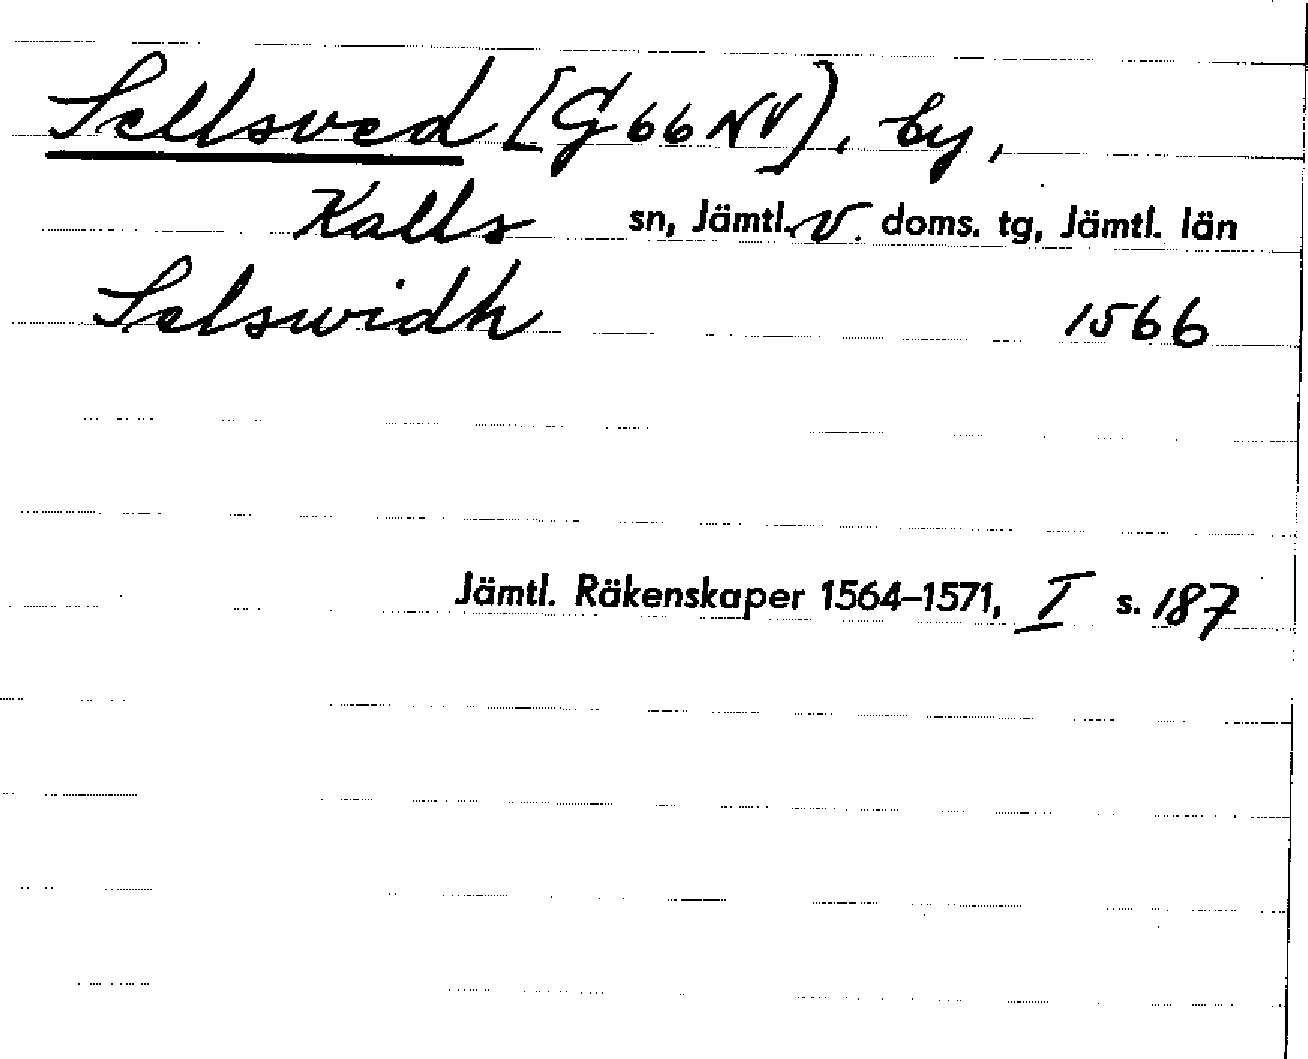 Sellsved [G 66 NV], by,
Kalls sn, Jämtl. v. doms. tg, Jämtl. län
Selswidh 1566
Jämtl. Räkenskaper 1564–1571, I s. 187